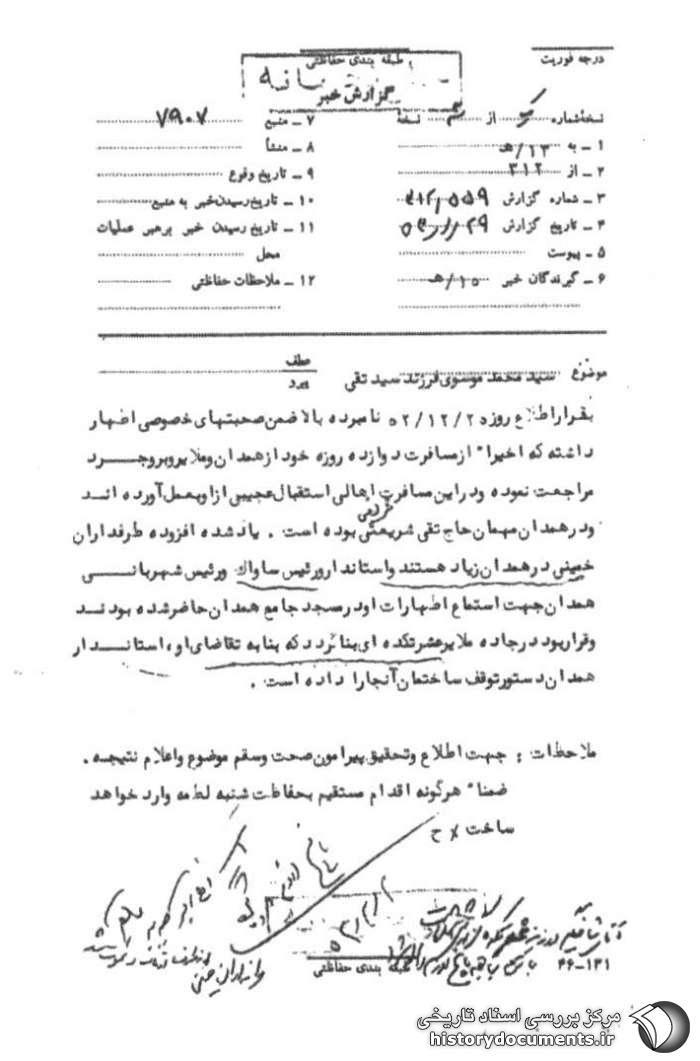 درجه فوریت
طبقه بندی حفاظتی
گزارش خبر
نسخهٔ شماره از نسخهٔ
۱ ــ به ۱۳/هـ
۲ ــ از ۳۱۲
۳ ــ شماره گزارش
۴ ــ تاریخ گزارش
۵ ــ پیوست
۶ ــ گیرندگان خبر ۱۰/هـ
۷ ــ منبع ۷۹۰۷
۸ ــ منشأ
۹ ــ تاریخ وقوع
۱۰ ــ تاریخ رسیدن خبر به منبع
۱۱ ــ تاریخ رسیدن خبر برهبر عملیات
محل
۱۲ ــ ملاحظات حفاظتی
موضوع سید محمد موسوی فرزند سید تقی
عطف
پیرو
بقرار اطلاع روز ۵۲/۱۲/۲۵ نامبرده بالا ضمن صحبتهای خصوصی اظهار
داشته که اخیرا" از مسافرت دوازده روزه خود از همدان و ملایر و بروجرد
مراجعت نموده و در این مسافرت اهالی استقبال عجیبی از او بعمل آورده اند
و در همدان مهمان حاج تقی شریعتی بوده است . یاد شده افزوده طرفداران
خمینی در همدان زیاد هستند و استاندار و رئیس ساواک و رئیس شهربانی
همدان جهت استماع اظهارات او در مسجد جامع همدان حاضر شده بودند
و قرار بود در جاده ملایر عشرتکده ای بنا گردد که بنا به تقاضای او ، استاندار
همدان دستور توقف ساختمان آنجا را داده است .
ملاحظات : جهت اطلاع و تحقیق پیرامون صحت و سقم موضوع و اعلام نتیجه .
ضمنا" هرگونه اقدام مستقیم بحفاظت شنبه لطمه وارد خواهد
ساخت × ح
طبقه بندی حفاظتی
۳۶-۱۳۱
مرکز بررسی اسناد تاریخی
historydocuments.ir